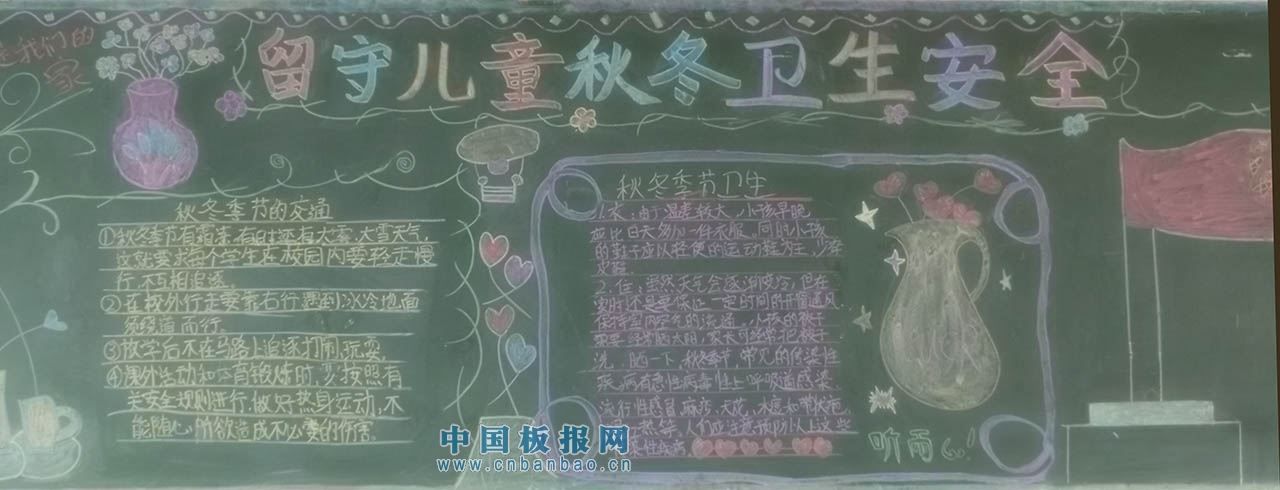 是我们的
家
留守儿童秋冬卫生安全
秋冬季节的交通
①秋冬季节有霜冻,有时还有大雾、大雪天气,
这就要求每个学生在校园内要轻走慢
行,不互相追逐。
②在校外行走要靠右行,遇到冰冷地面
须绕道而行。
③放学后不在马路上追逐打闹、玩耍。
④课外活动和体育锻炼时,必按照有
关安全规则进行,做好热身运动,不
能随心所欲造成不必要的伤害。
秋冬季节卫生
1.衣:由于温差较大,小孩早晚
应比白天多加一件衣服。同时小孩
的鞋子应以轻便的运动鞋为主,少穿
皮鞋。
2.住:虽然天气会逐渐变冷,但在
室内还是要保证一定时间的开窗通风,
保持室内空气的流通。小孩的被子
需要经常晒太阳,家长可经常把被子
洗、晒一下。秋冬季节,常见的传染性
疾病有急性病毒性上呼吸道感染、
流行性感冒、麻疹、天花、水痘和带状疱
热等,人们应注意预防以上这些
性疾病
听雨
中国板报网
www.cnbanbao.cn